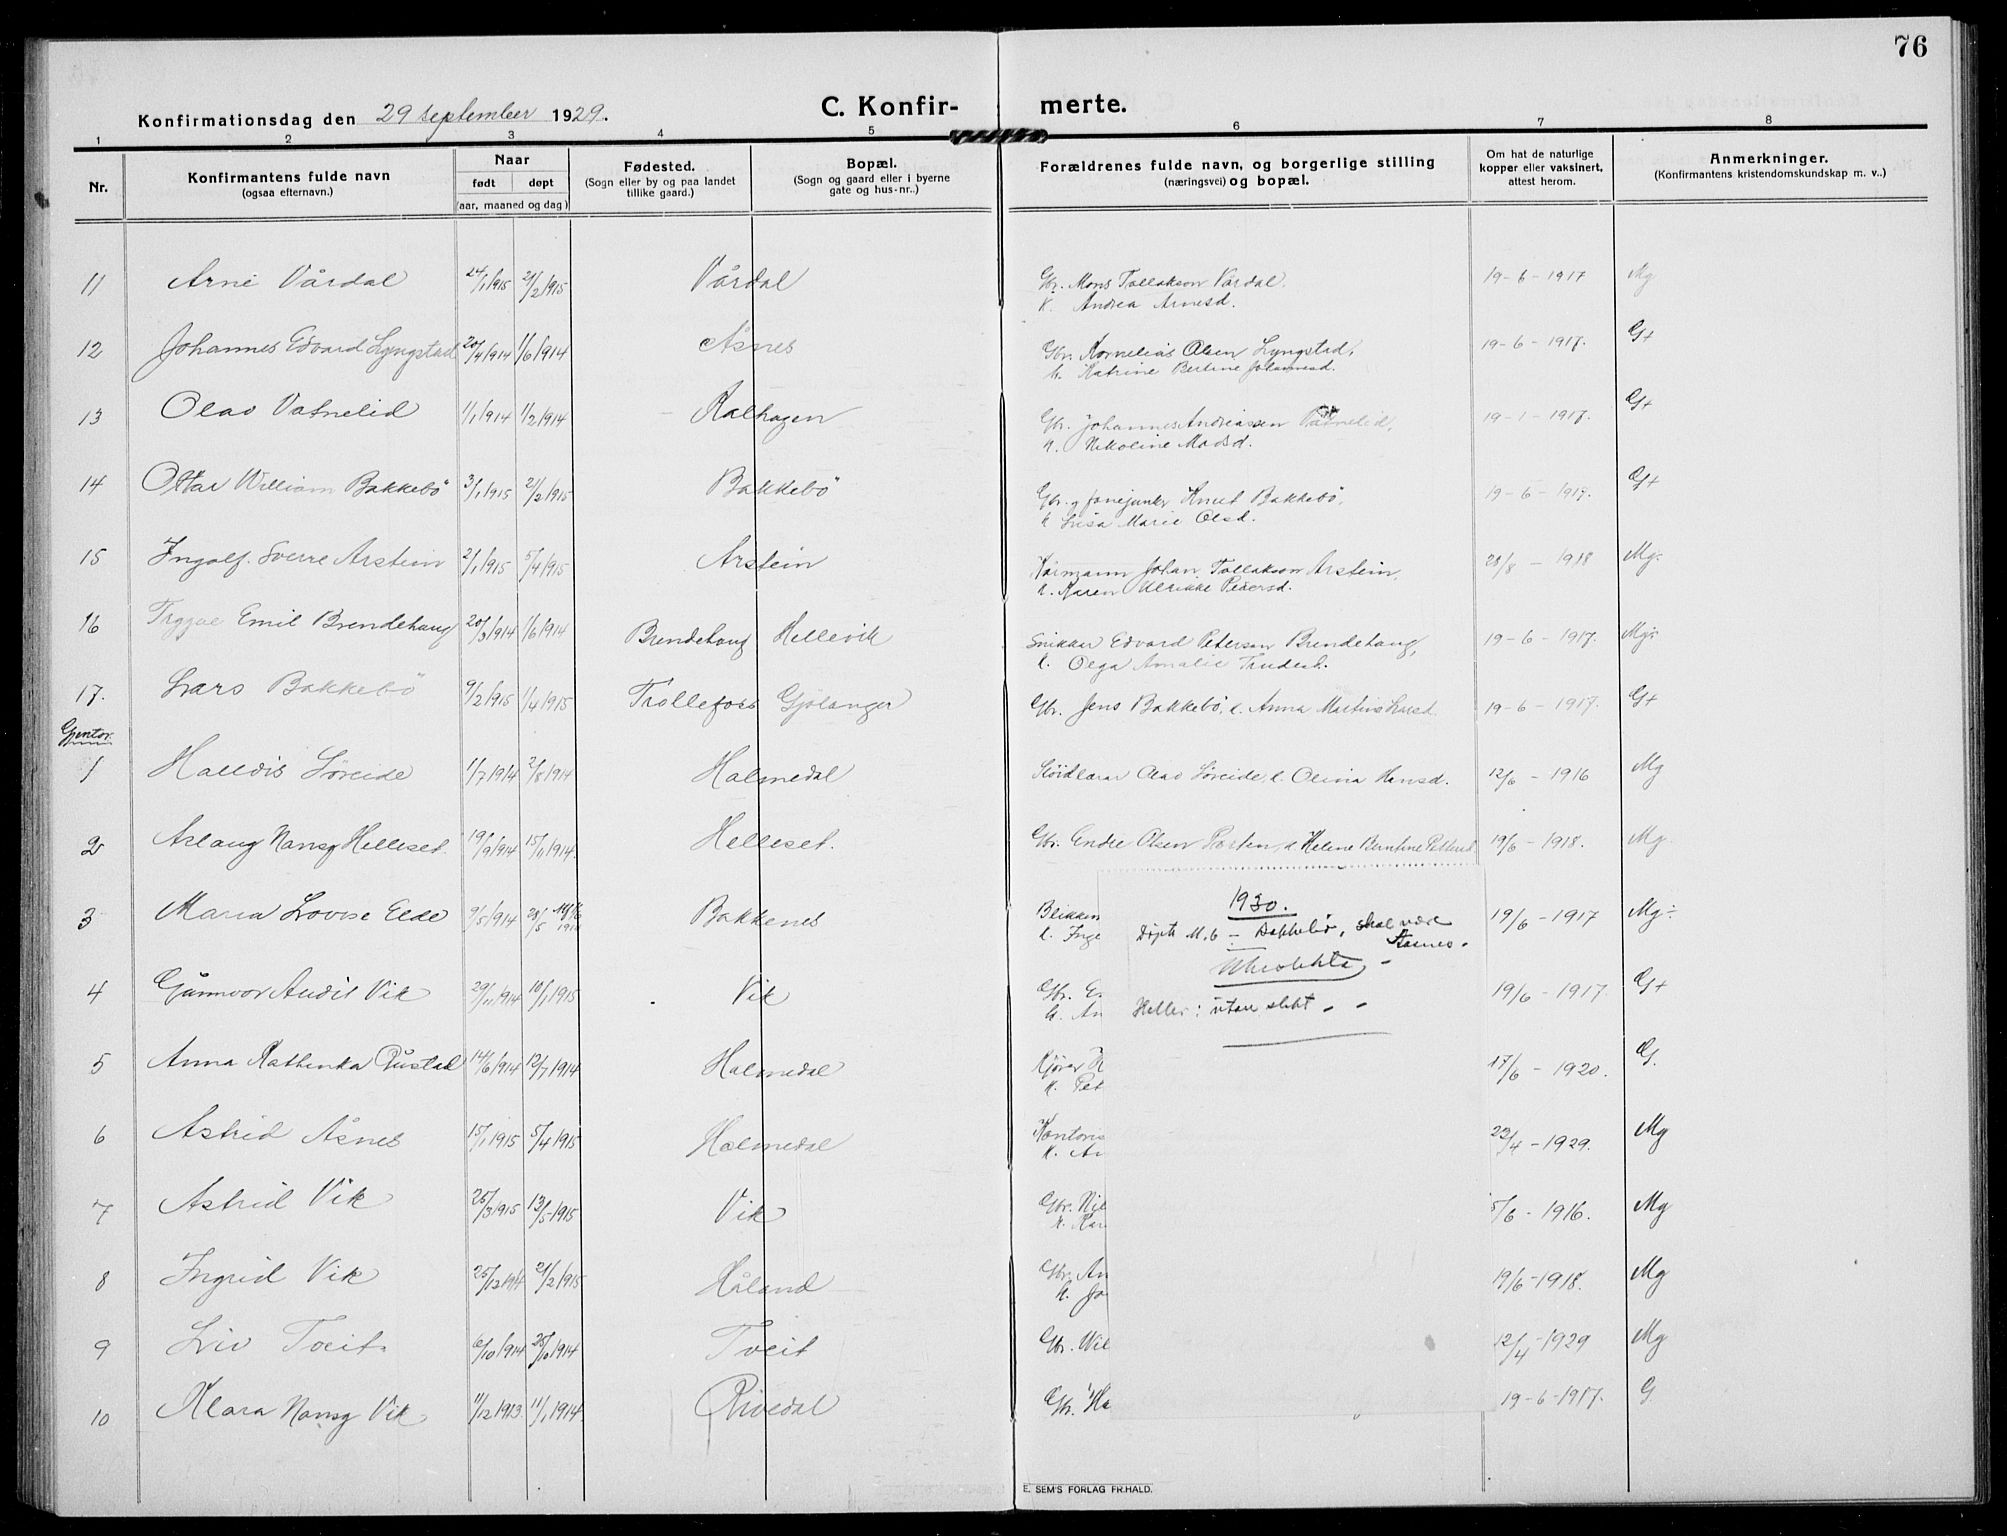 76
Konfirmationsdag den 29 september 1929.
C. Konfir- merte.
1 2 3 4 5 6 7 8
Nr.
Konfirmantens fulde navn
(ogsaa efternavn.)
Naar
født døpt
(aar, maaned og dag)
Fødested.
(Sogn eller by og paa landet
tillike gaard.)
Bopæl.
(Sogn og gaard eller i byerne
gate og hus-nr..)
Forældrenes fulde navn, og borgerlige stilling
(næringsvei) og bopæl.
Om hat de naturlige
kopper eller vaksinert,
attest herom.
Anmerkninger.
(Konfirmantens kristendomskundskap m. v..)
11 Arne Vårdal 24/1 1915 21/2 1915 Vårdal Gbr. Mons Tollakson Vårdal. 19-6-1917 Mg
k. Andrea Arnesd.
12 Johannes Edvard Lyngstad 20/4 1914 1/6 1914 Åsnes Gbr. Kornelius Olsen Lyngstad, 19-6-1917. G+
k. Katrine Bertine Johannesd.
13 Olav Vatnelid 1/1 1914 1/2 1914 Kalhagen Gbr. Johannes Andreassen Vatnelid, 19-1-1917. G+
k. Nikoline Madsd.
14 Ottar William Bakkebö 3/1 1915 21/2 1915 Bakkebö Gbr. og fanejunkr Knut Bakkebö, 19-6-1917. G+
k Lusa Marie Olsd.
15 Ingolf Sverre Arstein 2/1 1915 5/4 1915 Arstein Johan Tollakson Arstein, 28/8 - 1918 Mg-
k. Karen Ulrikke Pedersd.
16 Trygve Emil Brendehaug 20/3 1914 1/6 1914 Brendehaug Hellevik Snikkar Edvard Peterson Brendehaug, 19-6-1917. Mg-
k. Olga Amalie
17. Lars Bakkebö 9/2 1915 1/4 1915 Trollefoss Gjölanger Gbr. Jens Bakkebö, k. Anna Martine Larsd. 19-6-1917. G+
Gjentor.
1 Halldis Söreide 11/7 1914 2/8 1914 Holmedal Sløidlærar Olav Söreide, k. Olivia Hansd. 12/6 - 1916 Mg
2 Aslaug Nansy Helleset 19/9 1914 15/11 1914. Helleset. Gbr. Endre Olsen k Helene Berntine 19/6 - 1918. Mg
3 Maria Lovise Elde 9/5 1914 28/5 Bakkenes Blikken 19/6 - 1917 Mg-
k. Inge
4 Gunnvor Audil Vik 29/11 1914 10/1 1915 Vik Gbr. E 19/6 - 1917. G+
k. An
5 Anna Kathinka Rustad 14/6 1914 12/7 1914 Holmedal Kjører 17/6 - 1920. G.
k. Pet
6 Astrid Åsnes 15/1 1915 5/4 1915 Holmedal Kontoris 23/4 - 1929. Mg
k. An
7 Astrid Vik 25/3 1915 13/5 1915 Vik Gbr. Nil 5/6 - 1916. Mg
k. Kar
8 Ingrid Vik 25/12 1914 21/2 1915 Håland Gbr. An 19/6 - 1918. Mg
k. Jo
9 Liv Tveit 6/10 1914 25/10 1914 Tveit Gbr. Wil 12/4 - 1929 Mg
10 Klara Nansy Vik 11/12 1913. 11/1 1914. Rivedal Gbr. Ha 19-6-1917. G
1930.
Döpte M. 6 -
Heller: utan slekt
E. SEM'S FORLAG FR.HALD.